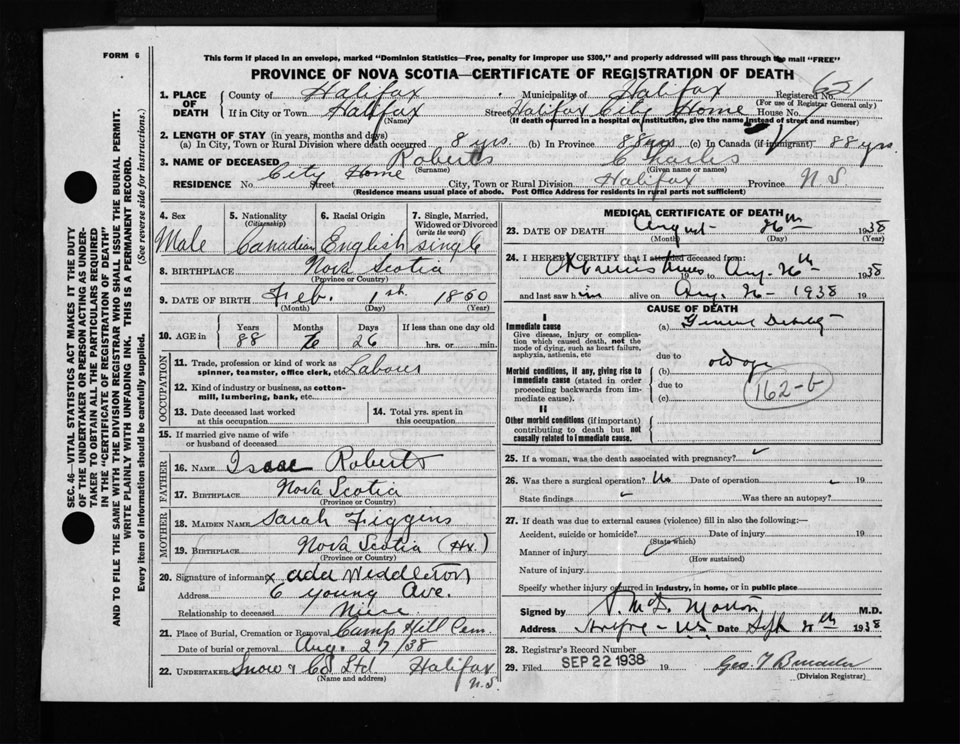 FORM 6
This form if placed in an envelope, marked "Dominion Statistics—Free, penalty for improper use $300," and properly addressed will pass through the mail "FREE"
PROVINCE OF NOVA SCOTIA—CERTIFICATE OF REGISTRATION OF DEATH
1. PLACE OF DEATH
County of Halifax Municipality of Halifax Registered No. 621
(For use of Registrar General only)
If in City or Town Halifax Street Halifax City Home House No.
(Name) (If death occurred in a hospital or institution, give the name instead of street and number)
2. LENGTH OF STAY (in years, months and days)
(a) In City, Town or Rural Division where death occurred 8 yrs. (b) In Province 88 yrs (c) In Canada (if immigrant) 88 yrs.
3. NAME OF DECEASED Roberts Charles
(Surname) (Given name or names)
RESIDENCE No. City Home Street City, Town or Rural Division Halifax Province N S
(Residence means usual place of abode. Post Office Address for residents in rural parts not sufficient)
4. Sex Male
5. Nationality (Citizenship) Canadian
6. Racial Origin English
7. Single, Married, Widowed or Divorced (write the word) single
8. BIRTHPLACE Nova Scotia
(Province or Country)
9. DATE OF BIRTH Feb. 1st 1850
(Month) (Day) (Year)
10. AGE in Years Months Days If less than one day old
88 6 26 hrs. or min.
OCCUPATION
11. Trade, profession or kind of work as spinner, teamster, office clerk, etc. Labour
12. Kind of industry or business, as cotton-mill, lumbering, bank, etc.
13. Date deceased last worked at this occupation
14. Total yrs. spent in this occupation
15. If married give name of wife or husband of deceased
FATHER
16. NAME Isaac Roberts
17. BIRTHPLACE Nova Scotia
(Province or Country)
MOTHER
18. MAIDEN NAME Sarah Figgens
19. BIRTHPLACE Nova Scotia (Hx.)
(Province or Country)
20. Signature of informant x Ada Middleton
Address 6 Young Ave.
Relationship to deceased Niece
21. Place of Burial, Cremation or Removal Camp Hill Cem.
Date of burial or removal Aug. 27/38
22. UNDERTAKER Snow & Co Ltd Halifax N.S.
(Name and address)
MEDICAL CERTIFICATE OF DEATH
23. DATE OF DEATH August 26th 1938
(Month) (Day) (Year)
24. I HEREBY CERTIFY that I attended deceased from:
19 Aug. 26th 1938
and last saw him alive on Aug. 26 - 1938 19
CAUSE OF DEATH
I
Immediate cause
Give disease, injury or complication which caused death, not the mode of dying, such as heart failure, asphyxia, asthenia, etc
(a) General Debility
due to
Morbid conditions, if any, giving rise to immediate cause (stated in order proceeding backwards from immediate cause).
(b) old age
due to
(c)
162-b
II
Other morbid conditions (if important) contributing to death but not causally related to immediate cause.
25. If a woman, was the death associated with pregnancy?
26. Was there a surgical operation? No Date of operation 19
State findings Was there an autopsy?
27. If death was due to external causes (violence) fill in also the following:—
Accident, suicide or homicide? Date of injury 19
(State which)
Manner of injury
(How sustained)
Nature of injury
Specify whether injury occurred in industry, in home, or in public place
Signed by M.D.
Address Date Sept 1938
28. Registrar's Record Number
29. Filed SEP 22 1938 19
(Division Registrar)
SEC. 46—VITAL STATISTICS ACT MAKES IT THE DUTY OF THE UNDERTAKER OR PERSON ACTING AS UNDERTAKER TO OBTAIN ALL THE PARTICULARS REQUIRED IN THE "CERTIFICATE OF REGISTRATION OF DEATH" AND TO FILE THE SAME WITH THE DIVISION REGISTRAR WHO SHALL ISSUE THE BURIAL PERMIT.
WRITE PLAINLY WITH UNFADING INK. THIS IS A PERMANENT RECORD.
Every item of information should be carefully supplied. (See reverse side for instructions.)